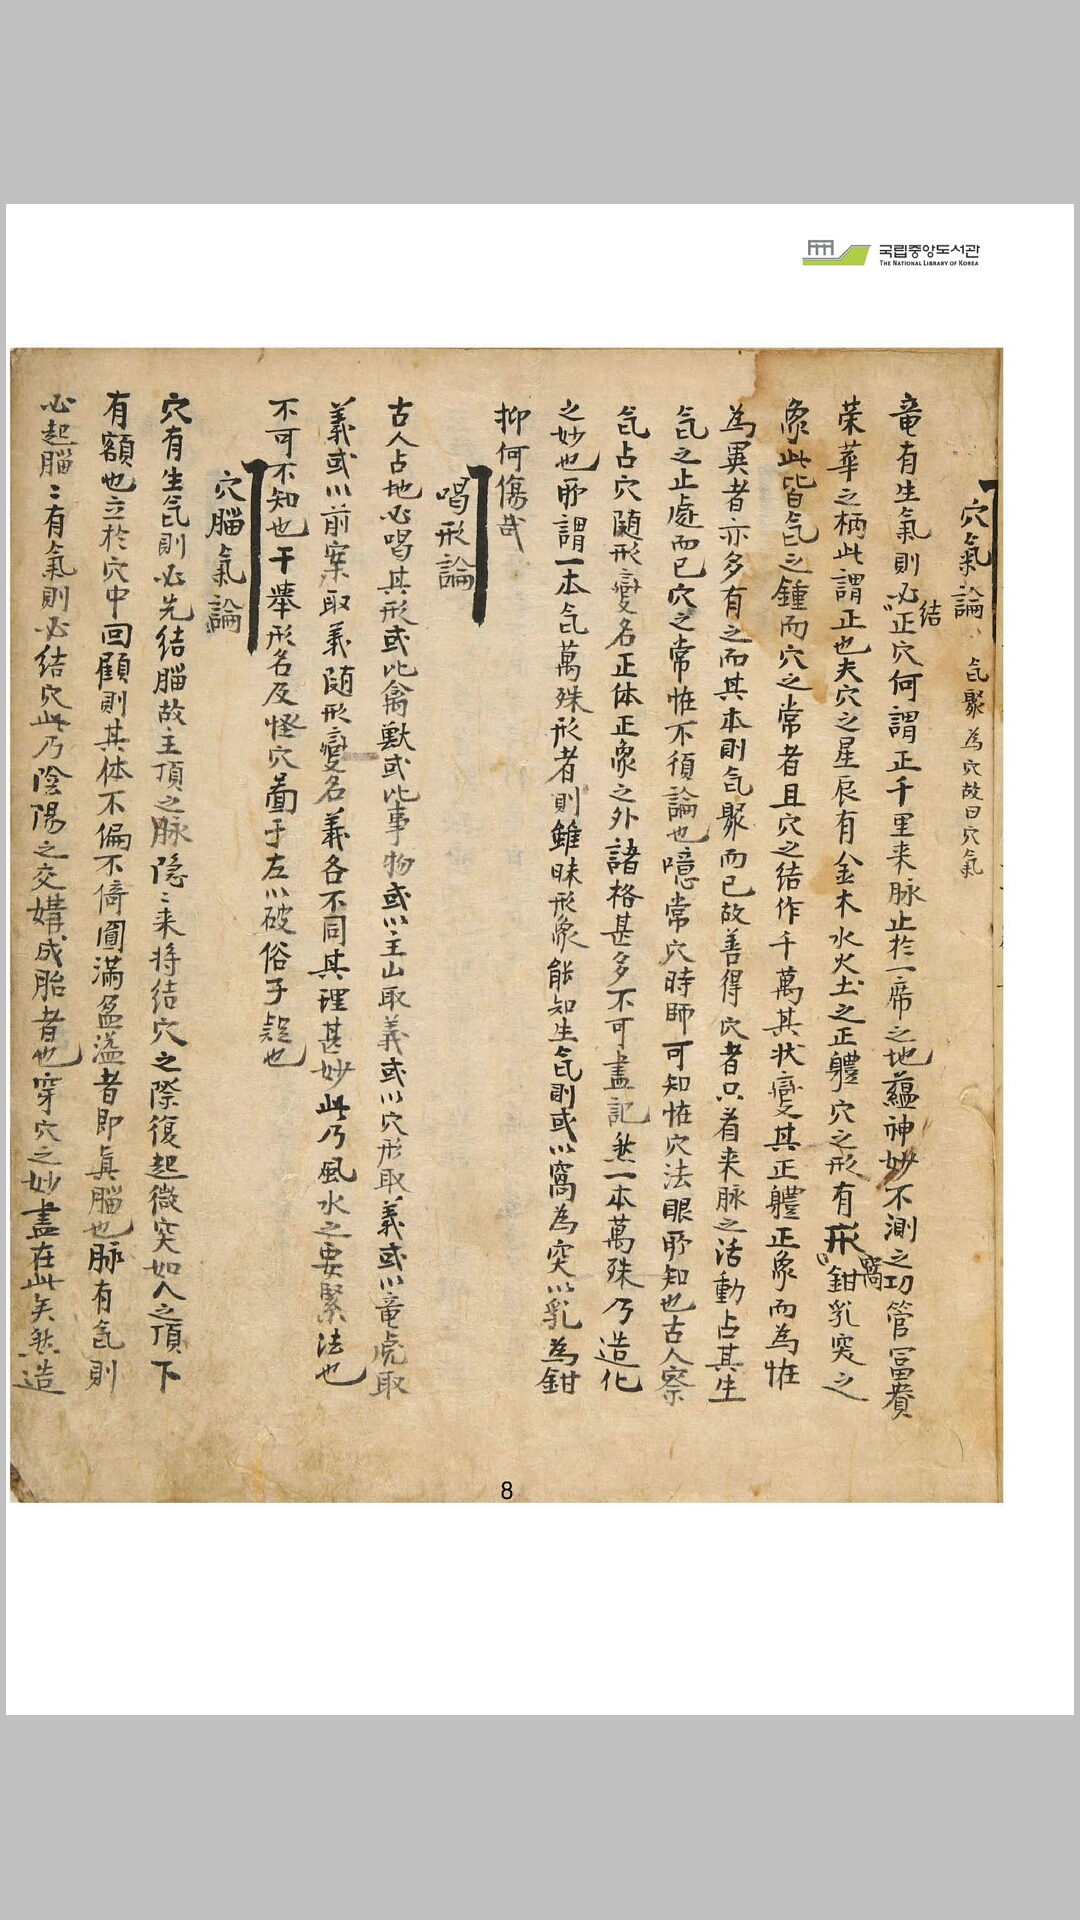 국립중앙도서관
THE NATIONAL LIBRARY OF KOREA
穴氣論 气聚為穴故曰穴氣
竜有生氣則必結正穴何謂正千里来脉止於一席之地蘊神妙不測之功管冨貴
荣華之柄此謂正也夫穴之星辰有金木水火土之正軆穴之形有窩鉗乳突之
象此皆气之鍾而穴之常者且穴之结作千萬其状變其正軆正象而為恠
為異者亦多有之而其本則气聚而已故善得穴者只看来脉之活動占其生
气之止處而已穴之常恠不須論也噫常穴時師可知恠穴法眼所知也古人察
气占穴随形變名正体正象之外諸格甚多不可盡記然一本萬殊乃造化
之妙也所謂一本气萬殊形者則雖昧形象能知生气則或以窩為突以乳為鉗
抑何傷哉
喝形論
古人占地必喝其形或比禽獸或比事物或以主山取義或以穴形取義或以竜虎取
義或以前案取義随形變名義各不同其理甚妙此乃風水之要緊法也
不可不知也干舉形名及怪穴啚于左以破俗子疑也
穴腦氣論
穴有生气則必先结腦故主頂之脉隐〻来将结穴之際復起微突如人之頂下
有額也立於穴中回顧則其体不偏不倚圓滿盈溢者即眞腦也脉有气則
必起腦〻有氣則必结穴此乃陰陽之交媾成胎者也穿穴之妙盡在此矣然造
8